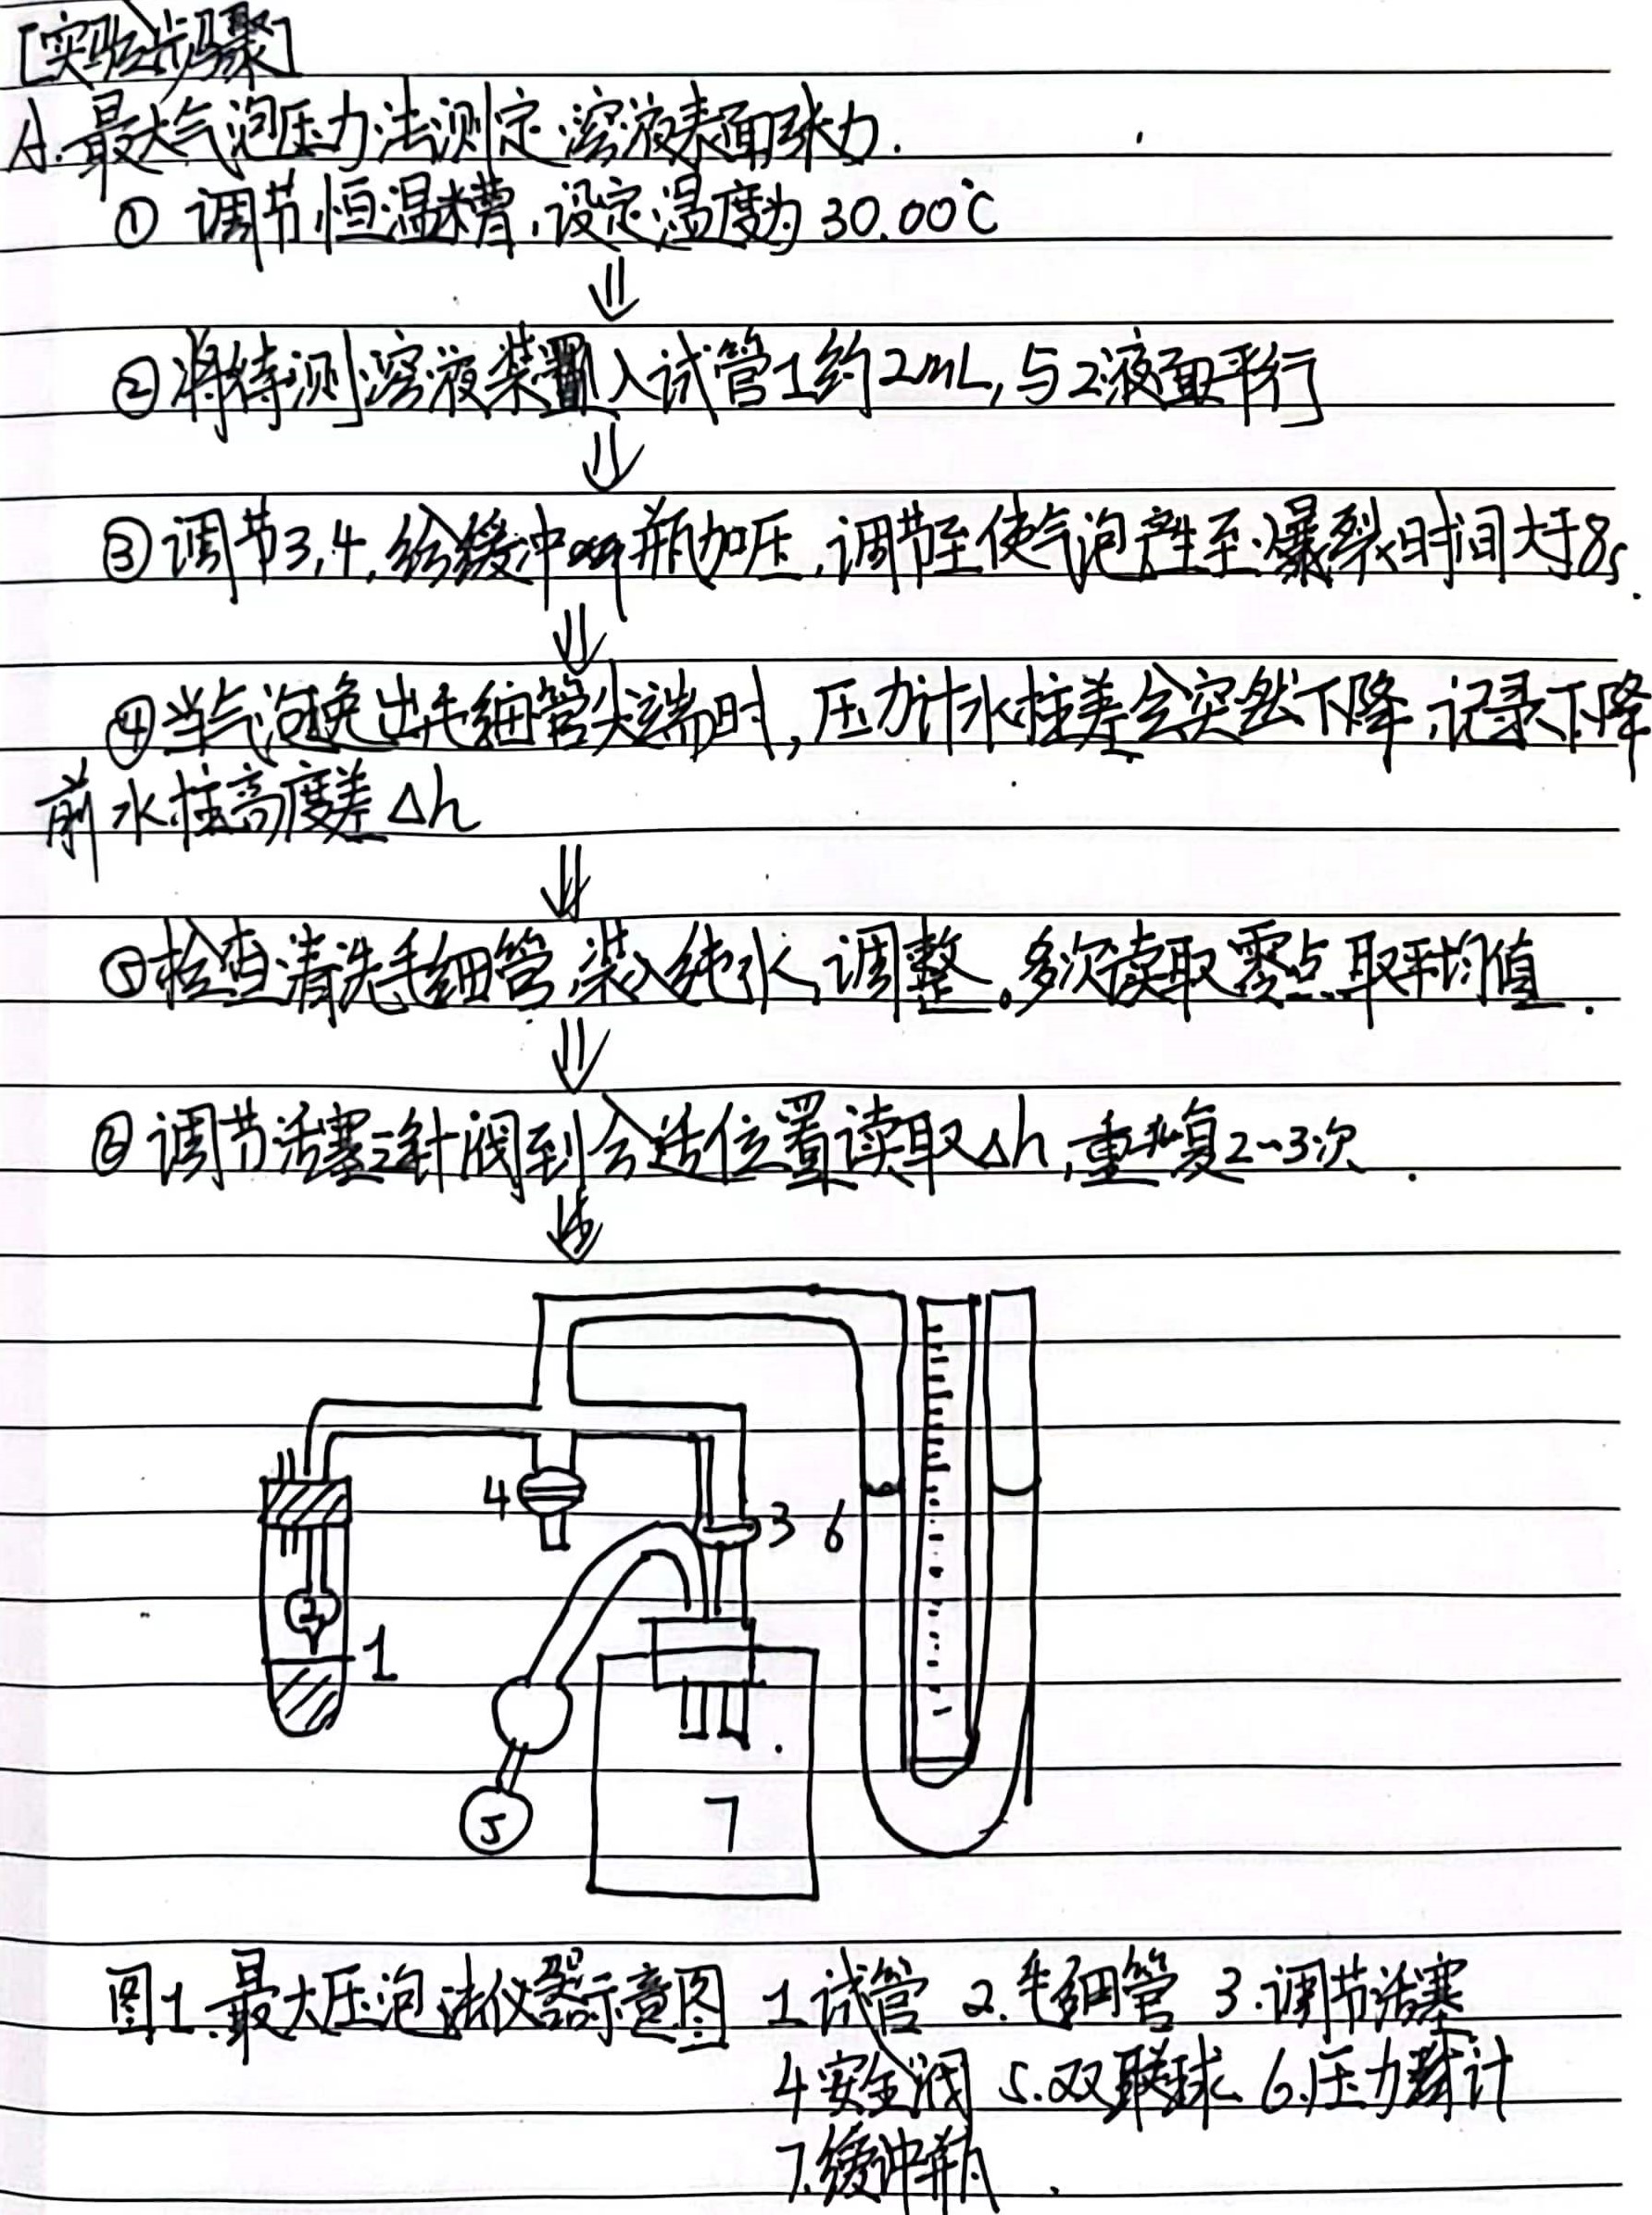 [实验步骤]
A.最大气泡压力法测定溶液表面张力.
① 调节恒温槽,设定温度为30.00℃
②将待测溶液装入试管1约2mL,与2液面平行
③调节3,4,给缓冲瓶加压,调节至使气泡产生至爆裂时间大于8s.
④当气泡逸出毛细管尖端时,压力计水柱差会突然下降,记录下降
前水柱高度差△h
⑤检查清洗毛细管,装入纯水,调整。多次读取零点取平均值.
⑥调节活塞针阀到合适位置读取△h,重复2~3次.
4
3
6
2
1
5
7
图1.最大压泡法仪器示意图 1.试管 2.毛细管 3.调节活塞
4安全阀 5.双联球 6.压力计
7.缓冲瓶.